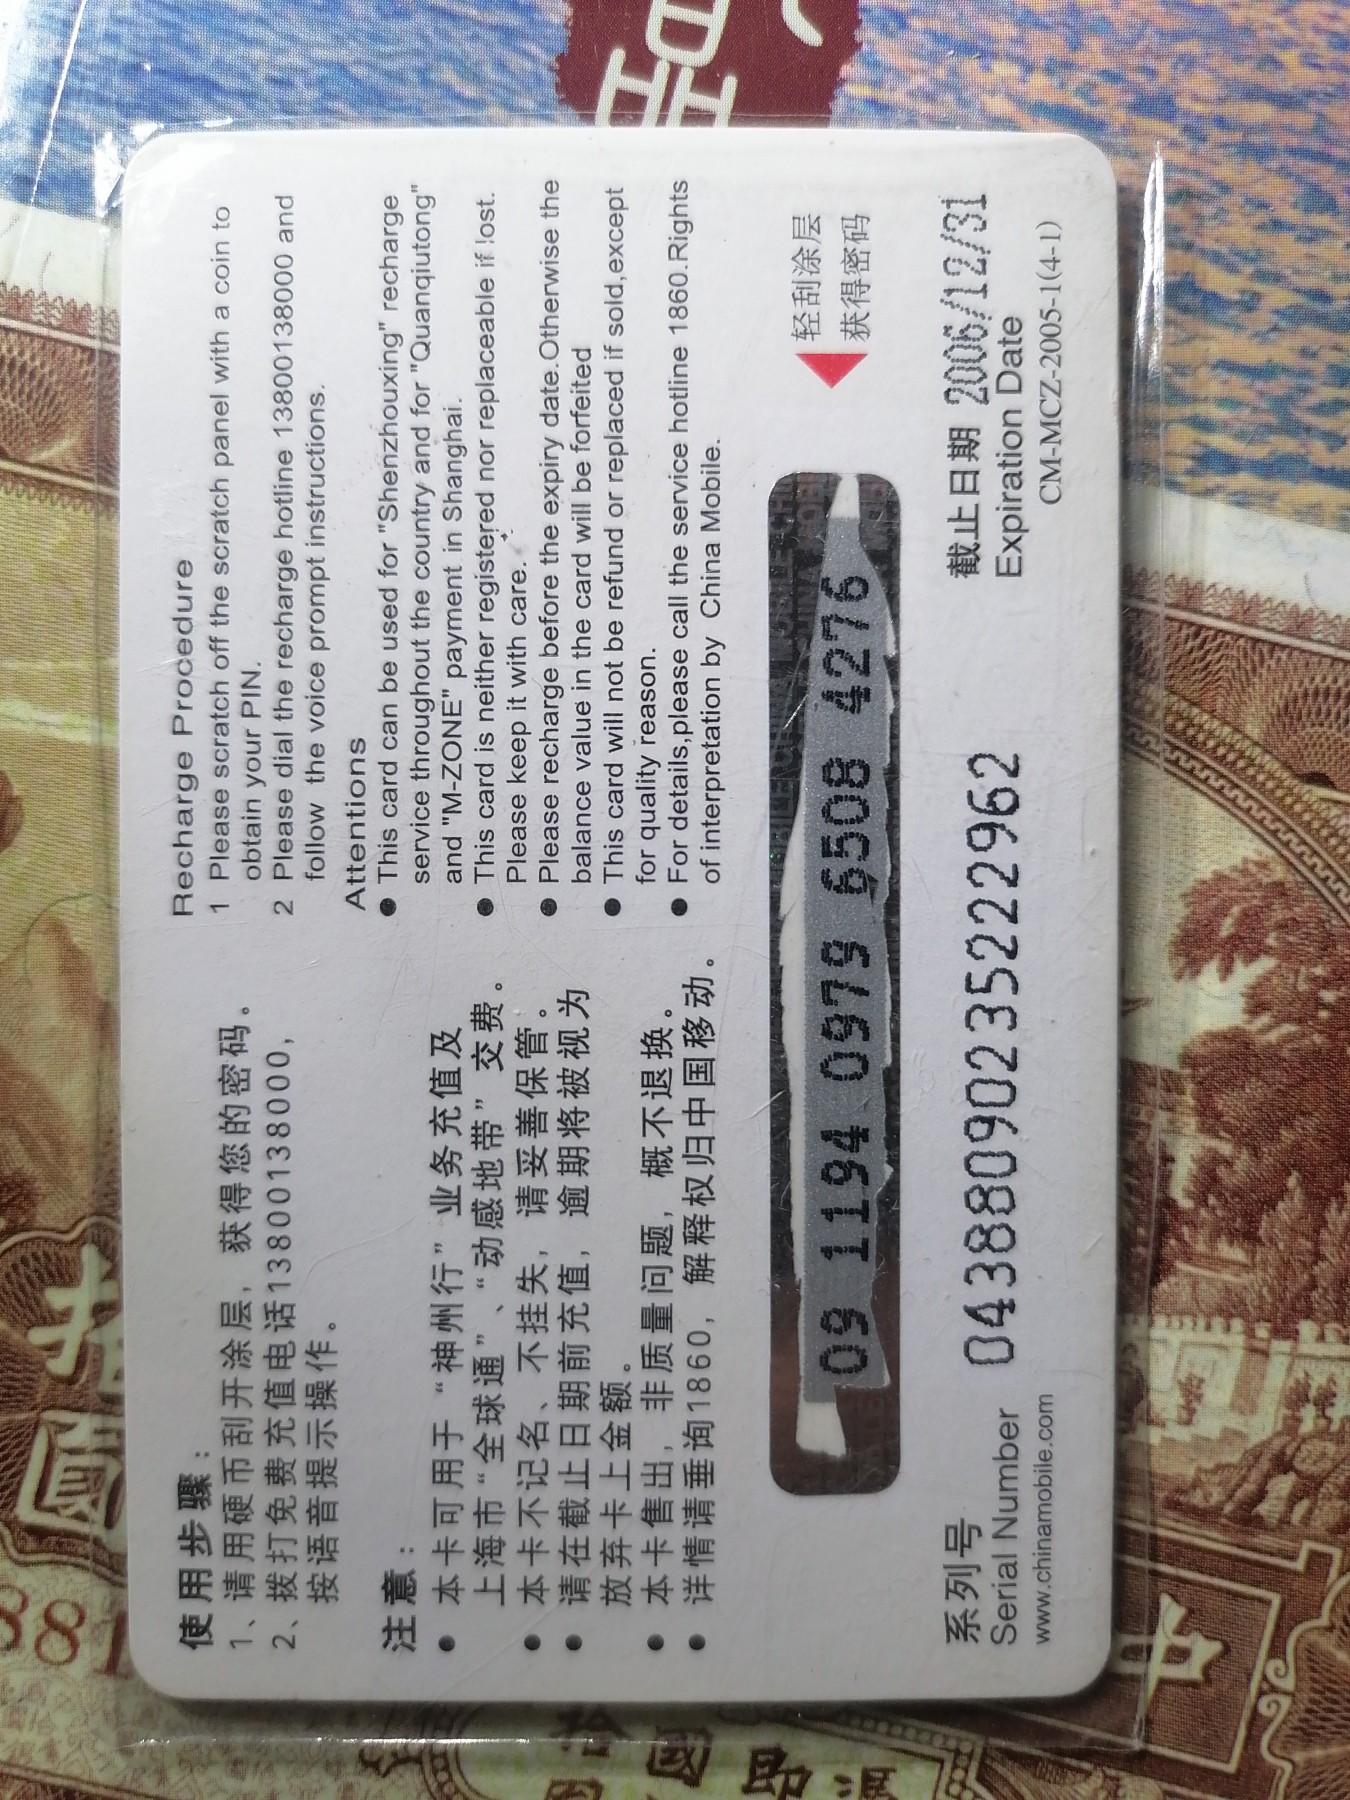 使用步骤：
1、请用硬币刮开涂层，获得您的密码。
2、拨打免费充值电话13800138000，
按语音提示操作。
注意：
● 本卡可用于“神州行”业务充值及
上海市“全球通”、“动感地带”交费。
● 本卡不记名、不挂失，请妥善保管。
● 请在截止日期前充值，逾期将被视为
放弃卡上金额。
● 本卡售出，非质量问题，概不退换。
● 详情请垂询1860，解释权归中国移动。
Recharge Procedure
1 Please scratch off the scratch panel with a coin to
obtain your PIN.
2 Please dial the recharge hotline 13800138000 and
follow the voice prompt instructions.
Attentions
● This card can be used for "Shenzhouxing" recharge
service throughout the country and for "Quanqiutong"
and "M-ZONE" payment in Shanghai.
● This card is neither registered nor replaceable if lost.
Please keep it with care.
● Please recharge before the expiry date.Otherwise the
balance value in the card will be forfeited
● This card will not be refund or replaced if sold,except
for quality reason.
● For details,please call the service hotline 1860.Rights
of interpretation by China Mobile.
09 1194 0979 6508 4276
轻刮涂层
获得密码
系列号
Serial Number
04388090235222962
截止日期 2006/12/31
Expiration Date
www.chinamobile.com
CM-MCZ-2005-1(4-1)